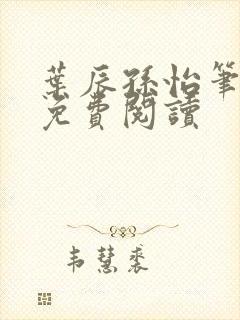 葉辰孫怡筆
免費閱讀
韦慧裘